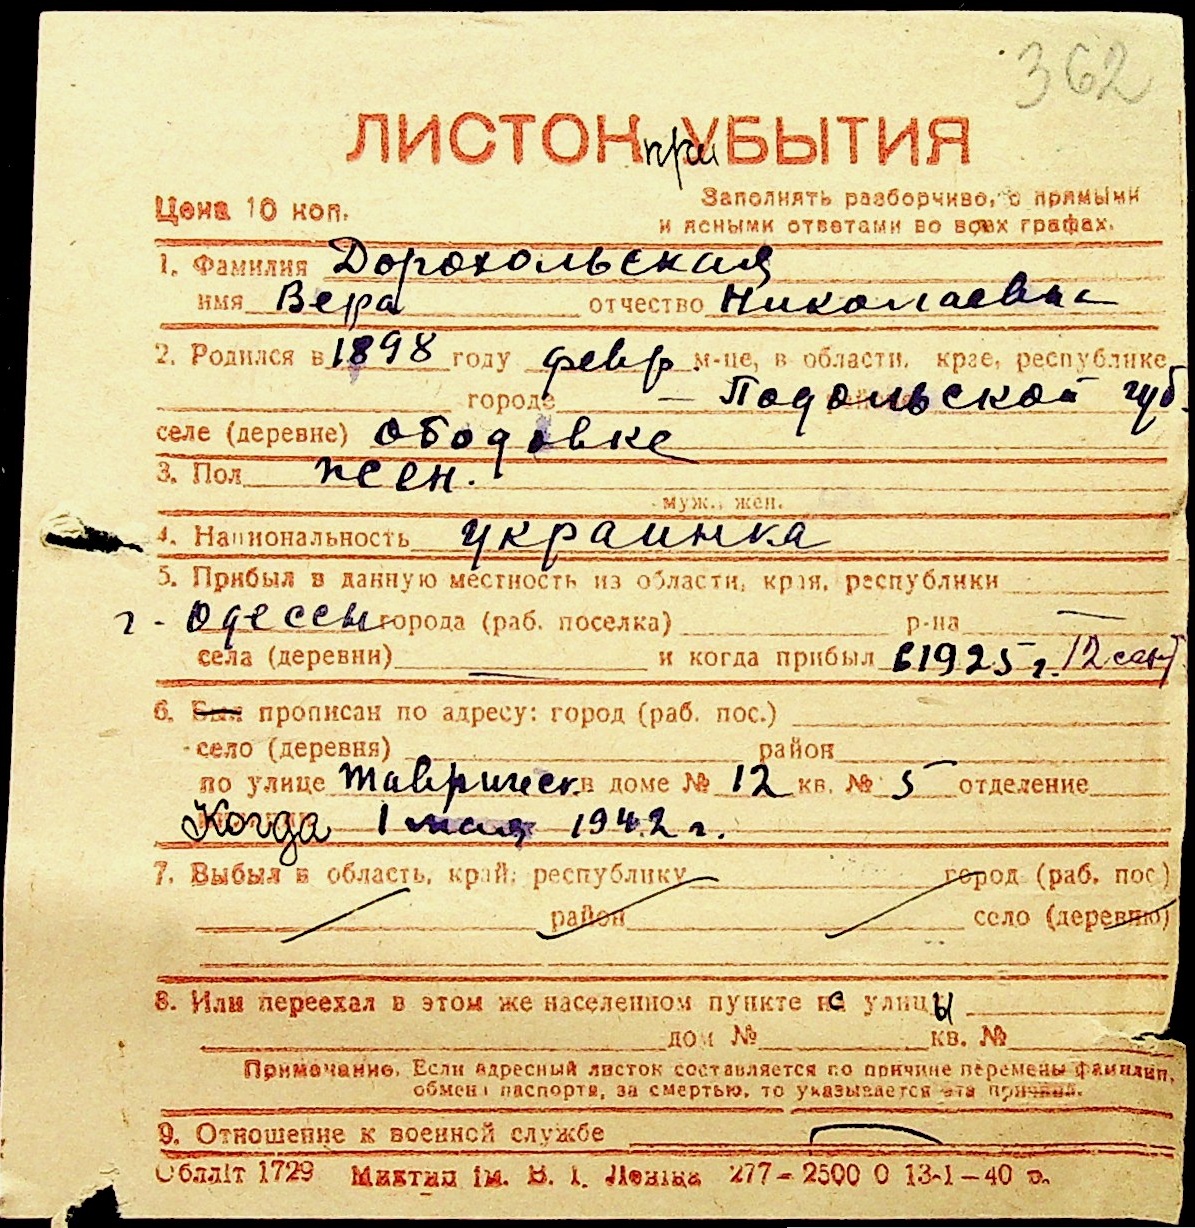 362
ЛИСТОК при УБЫТИЯ
Цена 10 коп.
Заполнять разборчиво, с прямыми
и ясными ответами во всех графах.
1. Фамилия Дорохольская
имя Вера отчество Николаевна
2. Родился в 1898 году февр м-це, в области, крае, республике
городе — Подольской губ.
селе (деревне) Ободовке
3. Пол жен.
муж., жен.
4. Национальность украинка
5. Прибыл в данную местность из области, края, республики
г. Одессы города (раб. поселка) р-на —
села (деревни) — и когда прибыл в 1925 г. 12 сент
6. Был прописан по адресу: город (раб. пос.)
село (деревня) район
по улице Таврическ. в доме № 12 кв. № 5 отделение
Когда 1 мая 1942 г.
7. Выбыл в область, край, республику город (раб. пос.)
район село (деревню)
8. Или переехал в этом же населенном пункте с улицы
дом № кв. №
Примечание. Если адресный листок составляется по причине перемены фамилии,
обмена паспорта, за смертью, то указывается эта причина.
9. Отношение к военной службе —
Облліт 1729 Миктип ім. В. І. Леніна 277—2500 0 13-1—40 р.